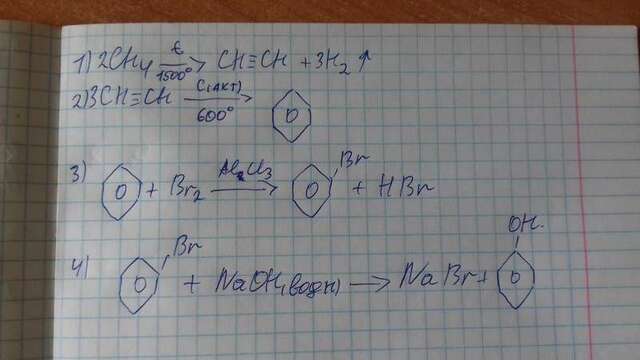 1) 2CH4 t 1500° → CH≡CH + 3H2 ↑
2) 3CH≡CH C(акт) 600° →
3) + Br2 AlCl3 → Br + HBr
4) Br + NaOH(водн) → NaBr + OH